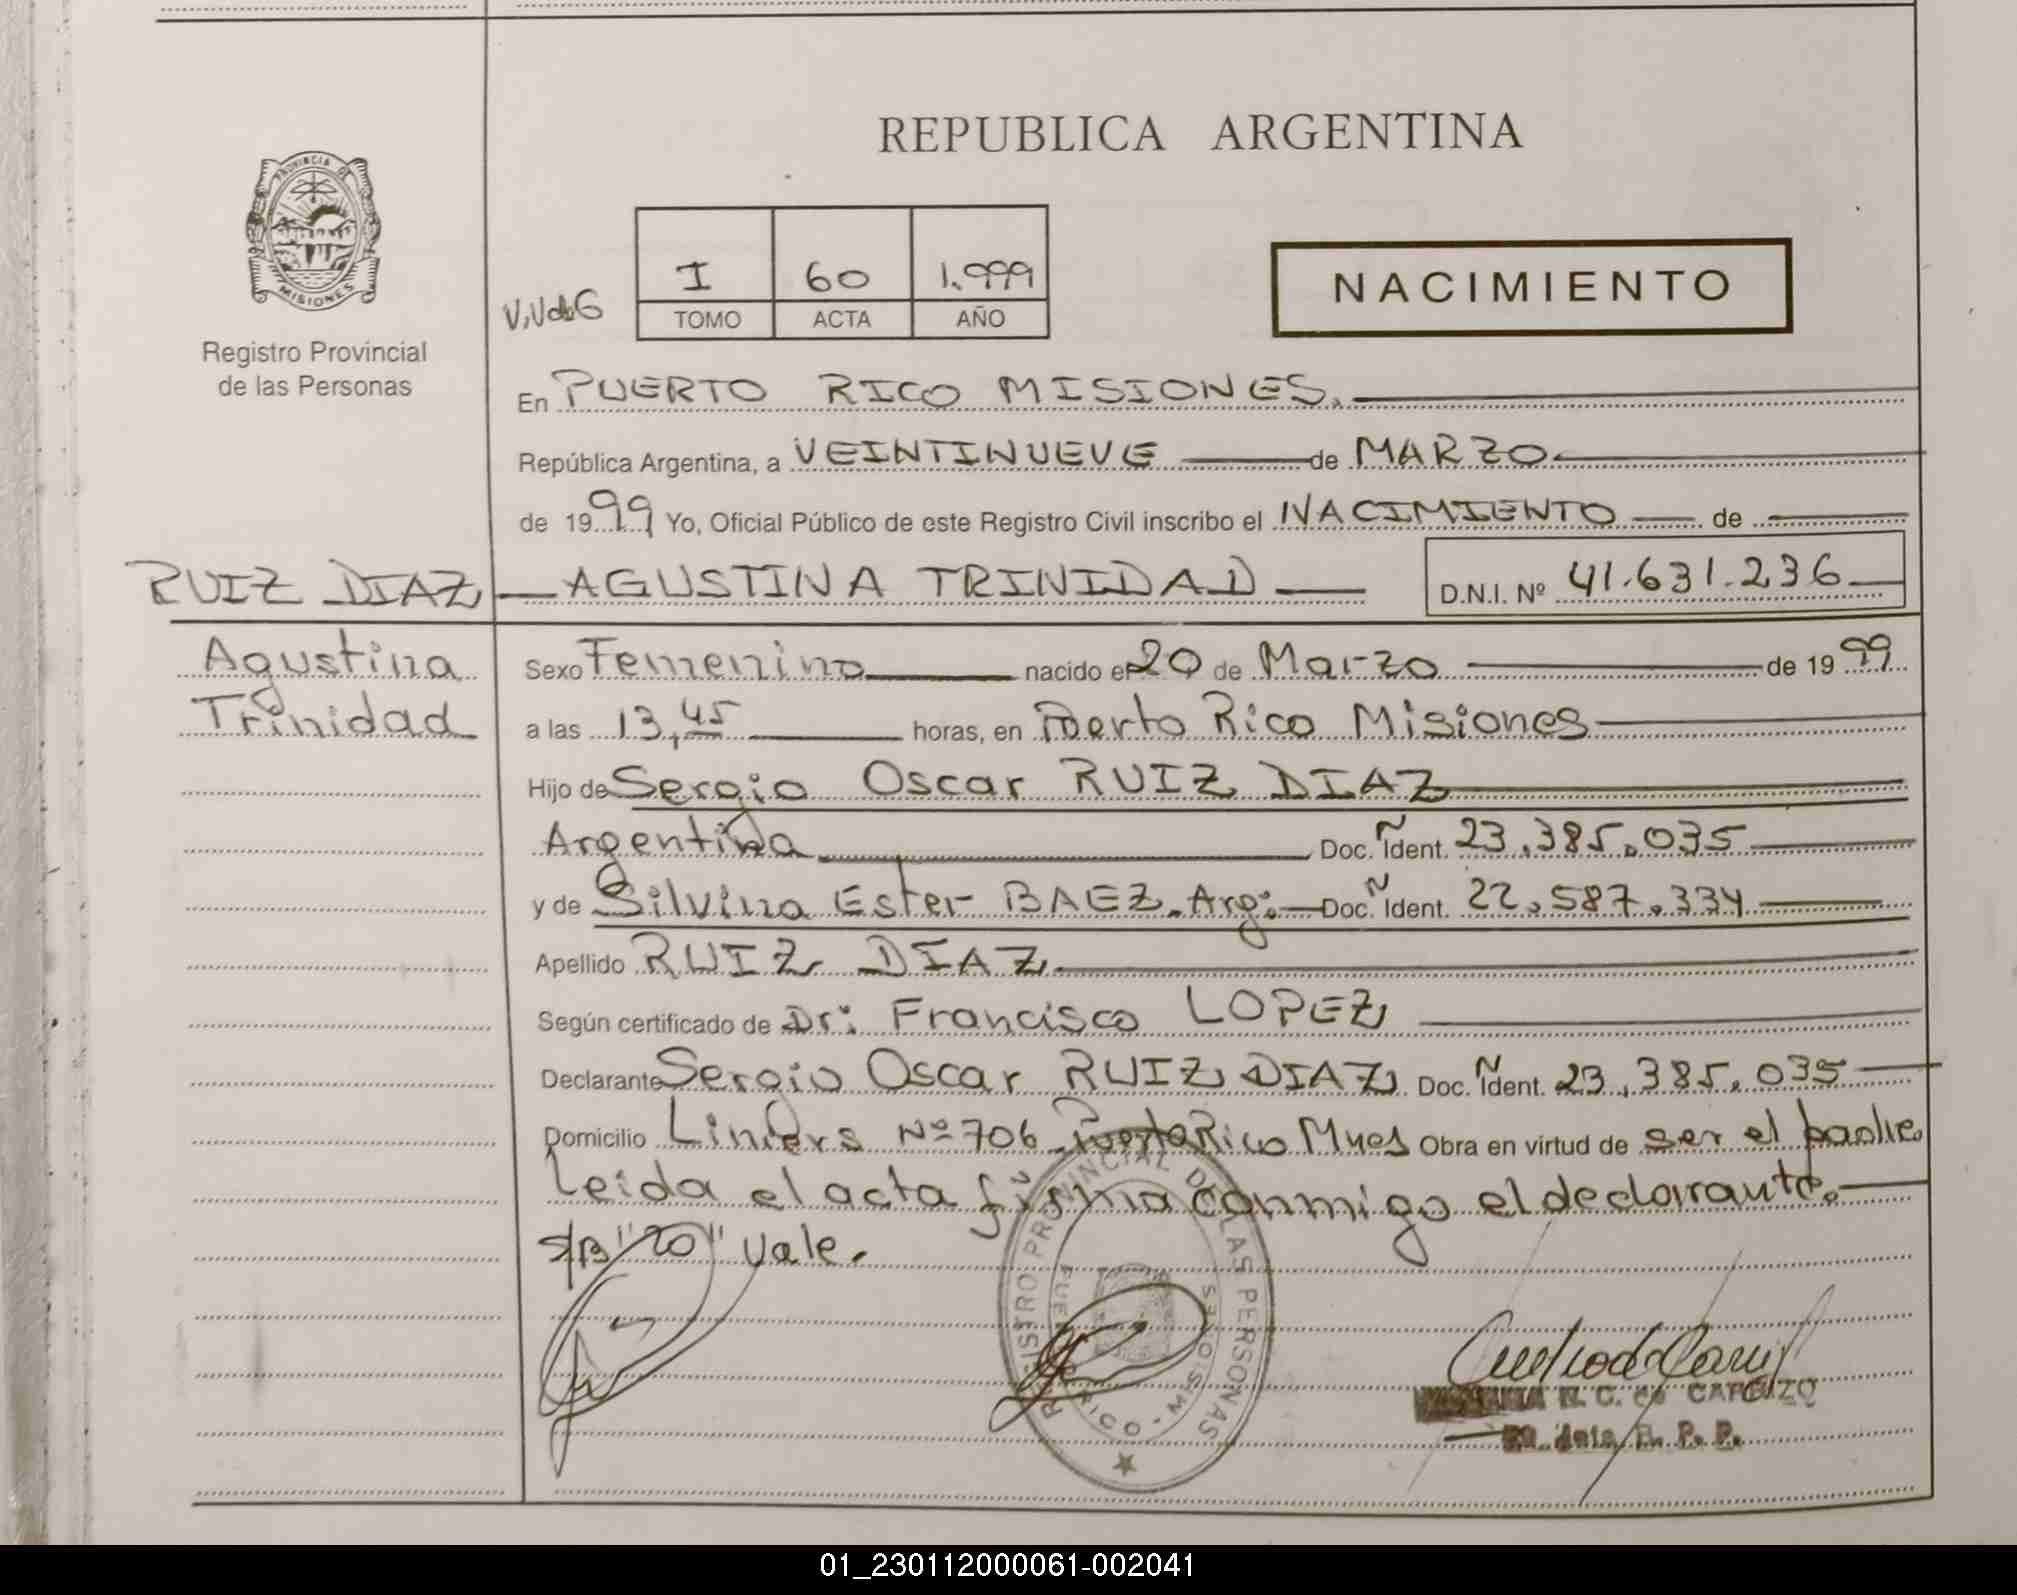 REPUBLICA ARGENTINA
PROVINCIA DE MISIONES
Registro Provincial
de las Personas
I 60 1.999
TOMO ACTA AÑO
NACIMIENTO
En PUERTO RICO MISIONES.
República Argentina, a VEINTINUEVE de MARZO
de 1999 Yo, Oficial Público de este Registro Civil inscribo el NACIMIENTO de
RUIZ DIAZ AGUSTINA TRINIDAD D.N.I. Nº 41.631.236
Agustina
Trinidad
Sexo Femenino nacido el 20 de Marzo de 1999
a las 13,45 horas, en Puerto Rico Misiones
Hijo de Sergio Oscar RUIZ DIAZ
Argentina Doc. Ident. 23.385.035
y de Silvina Ester BAEZ. Arg: Doc. Ident. 22.587.334
Apellido RUIZ DIAZ
Según certificado de Dr: Francisco LOPEZ
Declarante Sergio Oscar RUIZ DIAZ Doc. Ident. 23.385.035
Domicilio Liniers Nº 706 Puerto Rico Mnes Obra en virtud de ser el padre
Leida el acta firma conmigo el declarante.
S/B "20" Vale.
REGISTRO PROVINCIAL DE LAS PERSONAS
R. P. P.
01_230112000061-002041